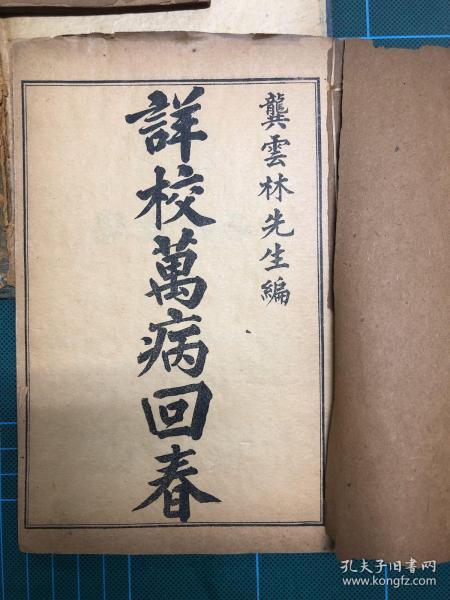 龔雲林先生編
詳校萬病回春
孔夫子旧书网
www.kongfz.com